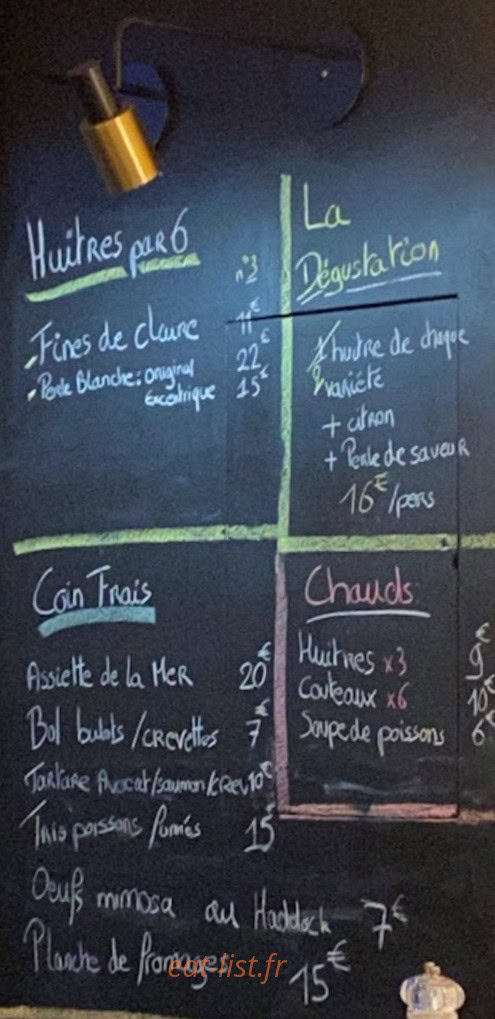 Huîtres par 6
n°3
Fines de claire 11€
Perle Blanche: original 22€
Excentrique 15€
La
Dégustation
huître de chaque
variété
+ citron
+ Perle de saveur
16€/pers
Coin Frais
Assiette de la MER 20€
Bol bulots/crevettes 7€
Tartare Avocat/saumon/crev 10€
Trio poissons fumés 15€
Chauds
Huîtres x3 9€
Couteaux x6 10€
Soupe de poissons 6€
Oeufs mimosa au Haddock 7€
Planche de fromages 15€
eat-list.fr